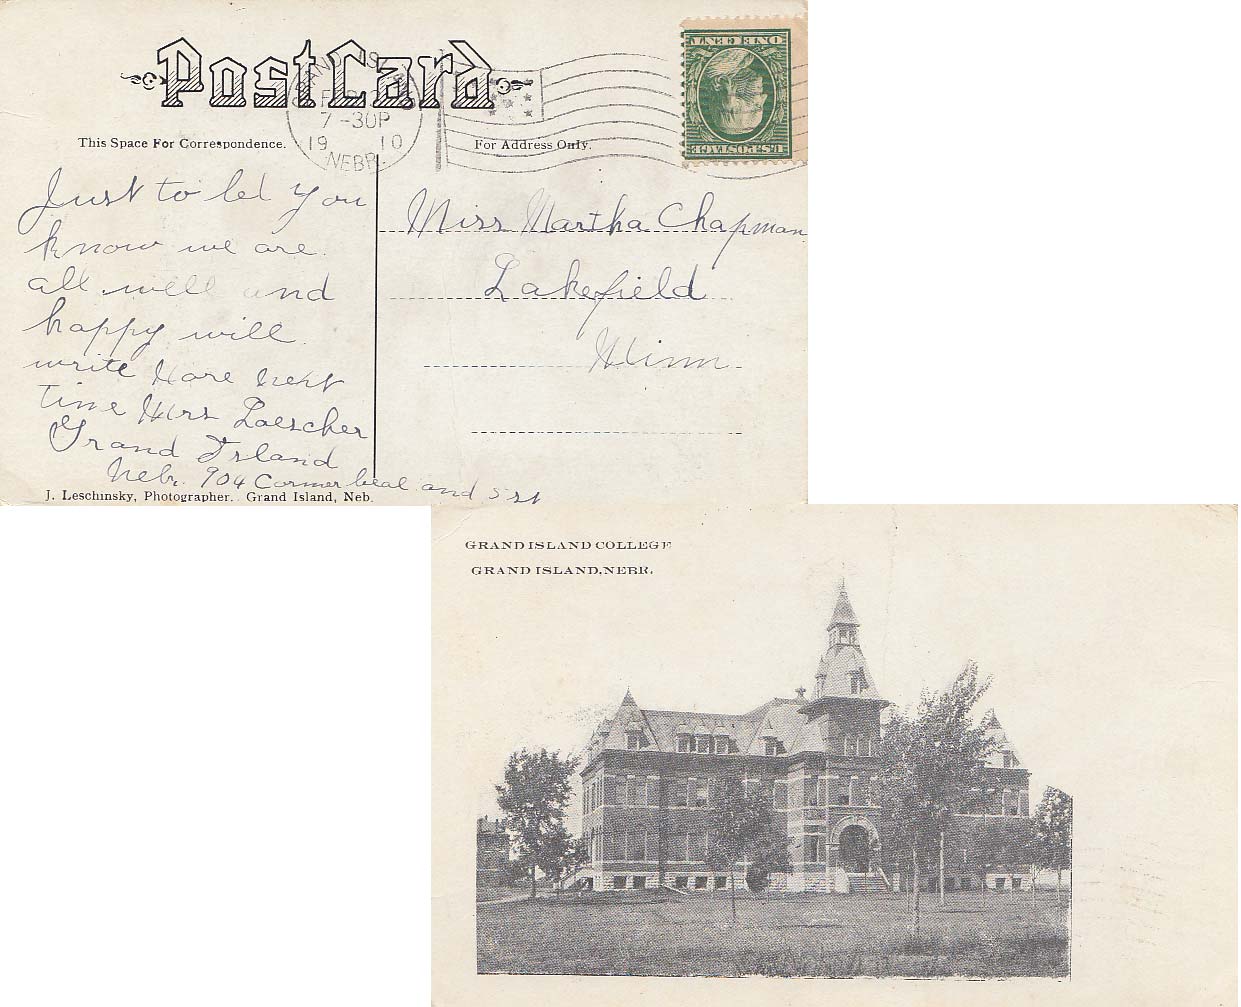 PostCard
GRAND IS
7-30P
19 10
NEBR.
ONE CENT
U.S. POSTAGE
This Space For Correspondence.
For Address Only.
Just to let you
know we are
all well and
happy will
write More next
time Mrs Loescher
Grand Island
Nebr. 904 Corner and St
Miss Martha Chapman
Lakefield
Minn.
J. Leschinsky, Photographer. Grand Island, Neb.
GRAND ISLAND COLLEGE
GRAND ISLAND, NEBR.